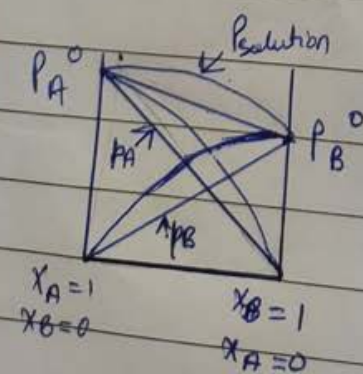 Psolution
PA°
PB°
pA
pB
xA=1
xB=0
xB=1
xA=0